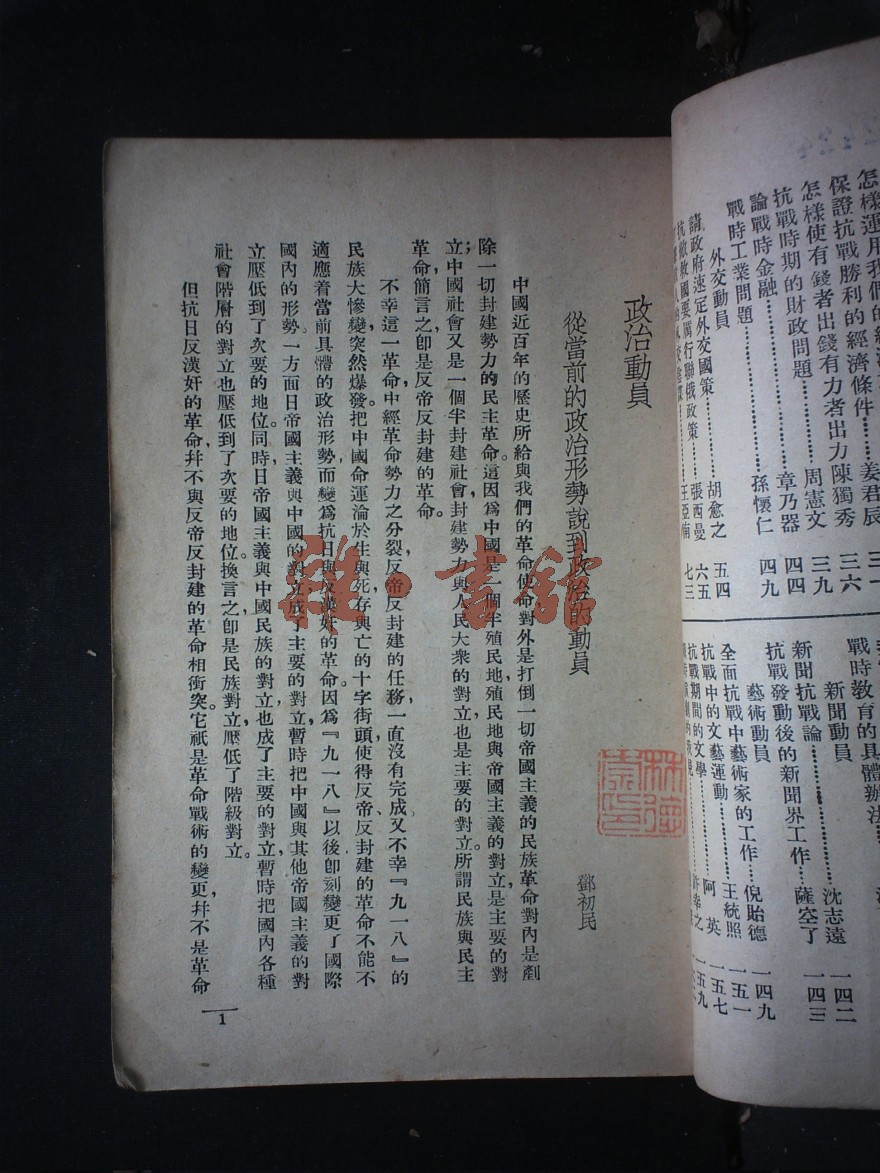 怎樣運用我們的經濟
保證抗戰勝利的經濟條件……姜君辰 三一
怎樣使有錢者出錢有力者出力 陳獨秀 三六
抗戰時期的財政問題……周憲文 三九
論戰時金融……章乃器 四四
戰時工業問題……孫懷仁 四九
外交動員
請政府速定外交國策……胡愈之 五四
抗敵救國要厲行聯俄政策……張西曼 六五
王亞南 七三
戰時教育的具體辦法
沈志遠 一四二
新聞動員
新聞抗戰論……薩空了 一四三
抗戰發動後的新聞界工作
藝術動員
全面抗戰中藝術家的工作……倪貽德 一四九
抗戰中的文藝運動……王統照 一五一
抗戰期間的文學……阿英 一五七
許幸之 一五九
政治動員
從當前的政治形勢說到政治的動員
鄧初民
中國近百年的歷史所給與我們的革命使命對外是打倒一切帝國主義的民族革命,對內是剷
除一切封建勢力的民主革命。這因爲中國是一個半殖民地殖民地與帝國主義的對立是主要的對
立;中國社會又是一個半封建社會,封建勢力與人民大衆的對立也是主要的對立。所謂民族與民主
革命,簡言之,卽是反帝反封建的革命。
不幸這一革命,中經革命勢力之分裂,反帝反封建的任務,一直沒有完成,又不幸『九一八』的
民族大慘變突然爆發,把中國命運淪於生與死、存與亡的十字街頭,使得反帝、反封建的革命不能不
適應着當前具體的政治形勢,而變爲抗日與反漢奸的革命。因爲『九一八』以後卽刻變更了國際
國內的形勢。一方面日帝國主義與中國的對立成了主要的對立,暫時把中國與其他帝國主義的對
立壓低到了次要的地位。同時日帝國主義與中國民族的對立也成了主要的對立,暫時把國內各種
社會階層的對立也壓低到了次要的地位。換言之,卽是民族對立,壓低了階級對立。
但抗日反漢奸的革命,幷不與反帝反封建的革命相衝突。它祇是革命戰術的變更,幷不是革命
1
雜·書舘